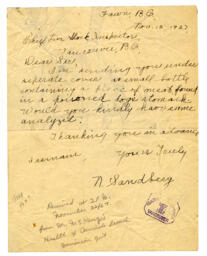 Fawn, B.C.
Nov. 18, 1927
Chief Live Stock Inspector,
Vancouver, B.C.
Dear Sir,
I am sending you under
seperate cover a small bottle
containing a piece of meat found
in a poisoned dogs stomach
Would you kindly have same
analyzed.
Thanking you in advance
Yours Truly
N. Sandberg
Received at 2 P.M.
November 22/27
from Mr.
Health of Animals Branch